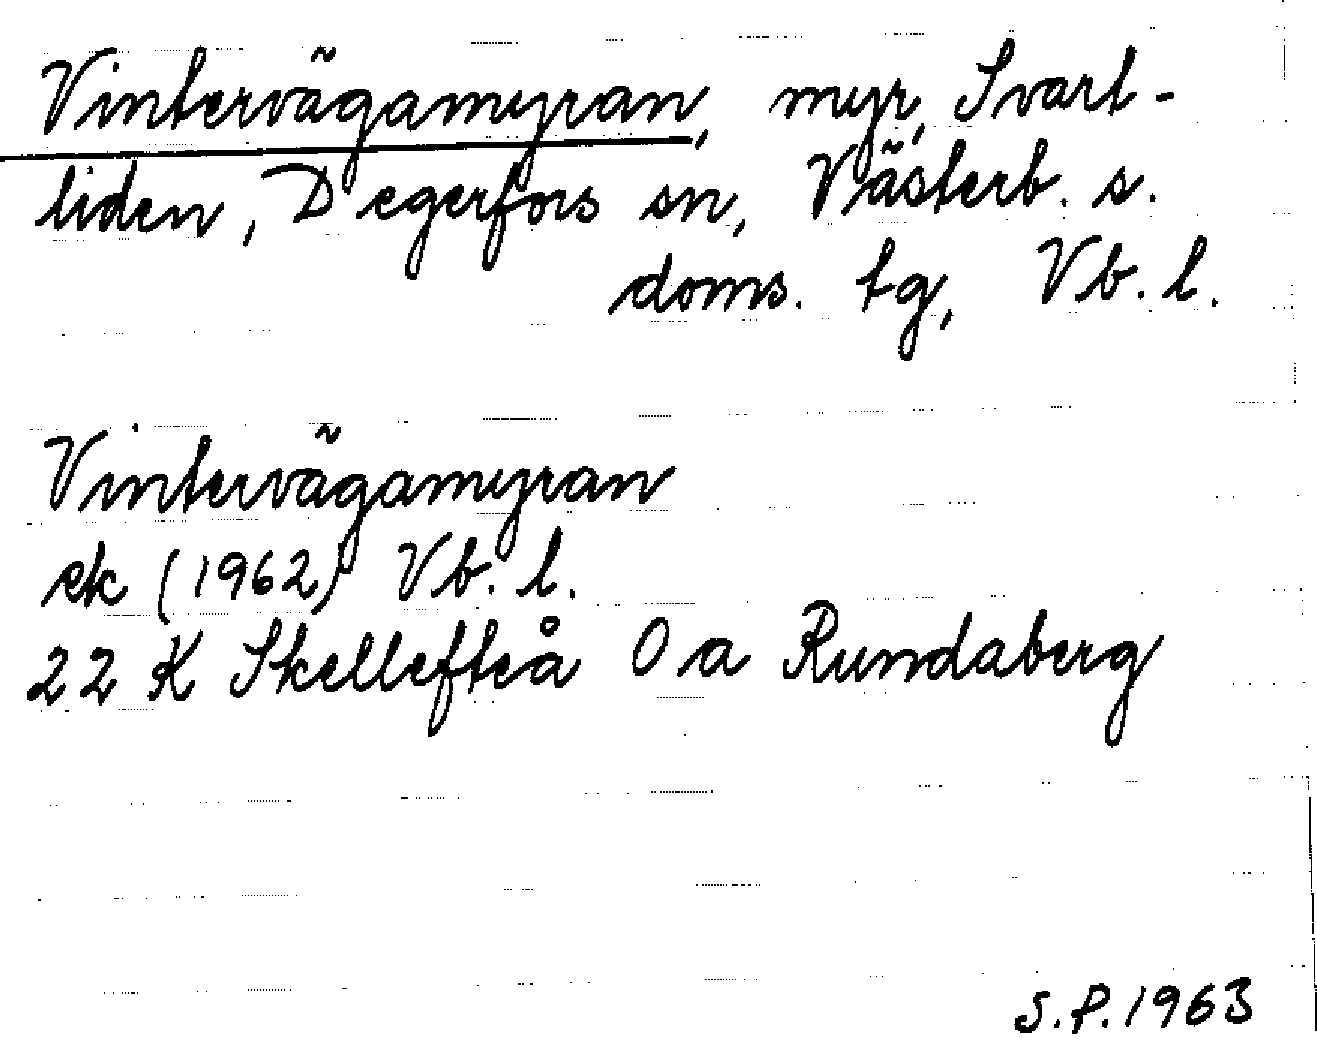 Vintervägamyran, myr, Svart-
liden, Degerfors sn, Västerb. s.
doms. tg, Vb. l.
Vintervägamyran
ek (1962) Vb. l.
22 K Skellefteå O a Rundaberg
S.P. 1963